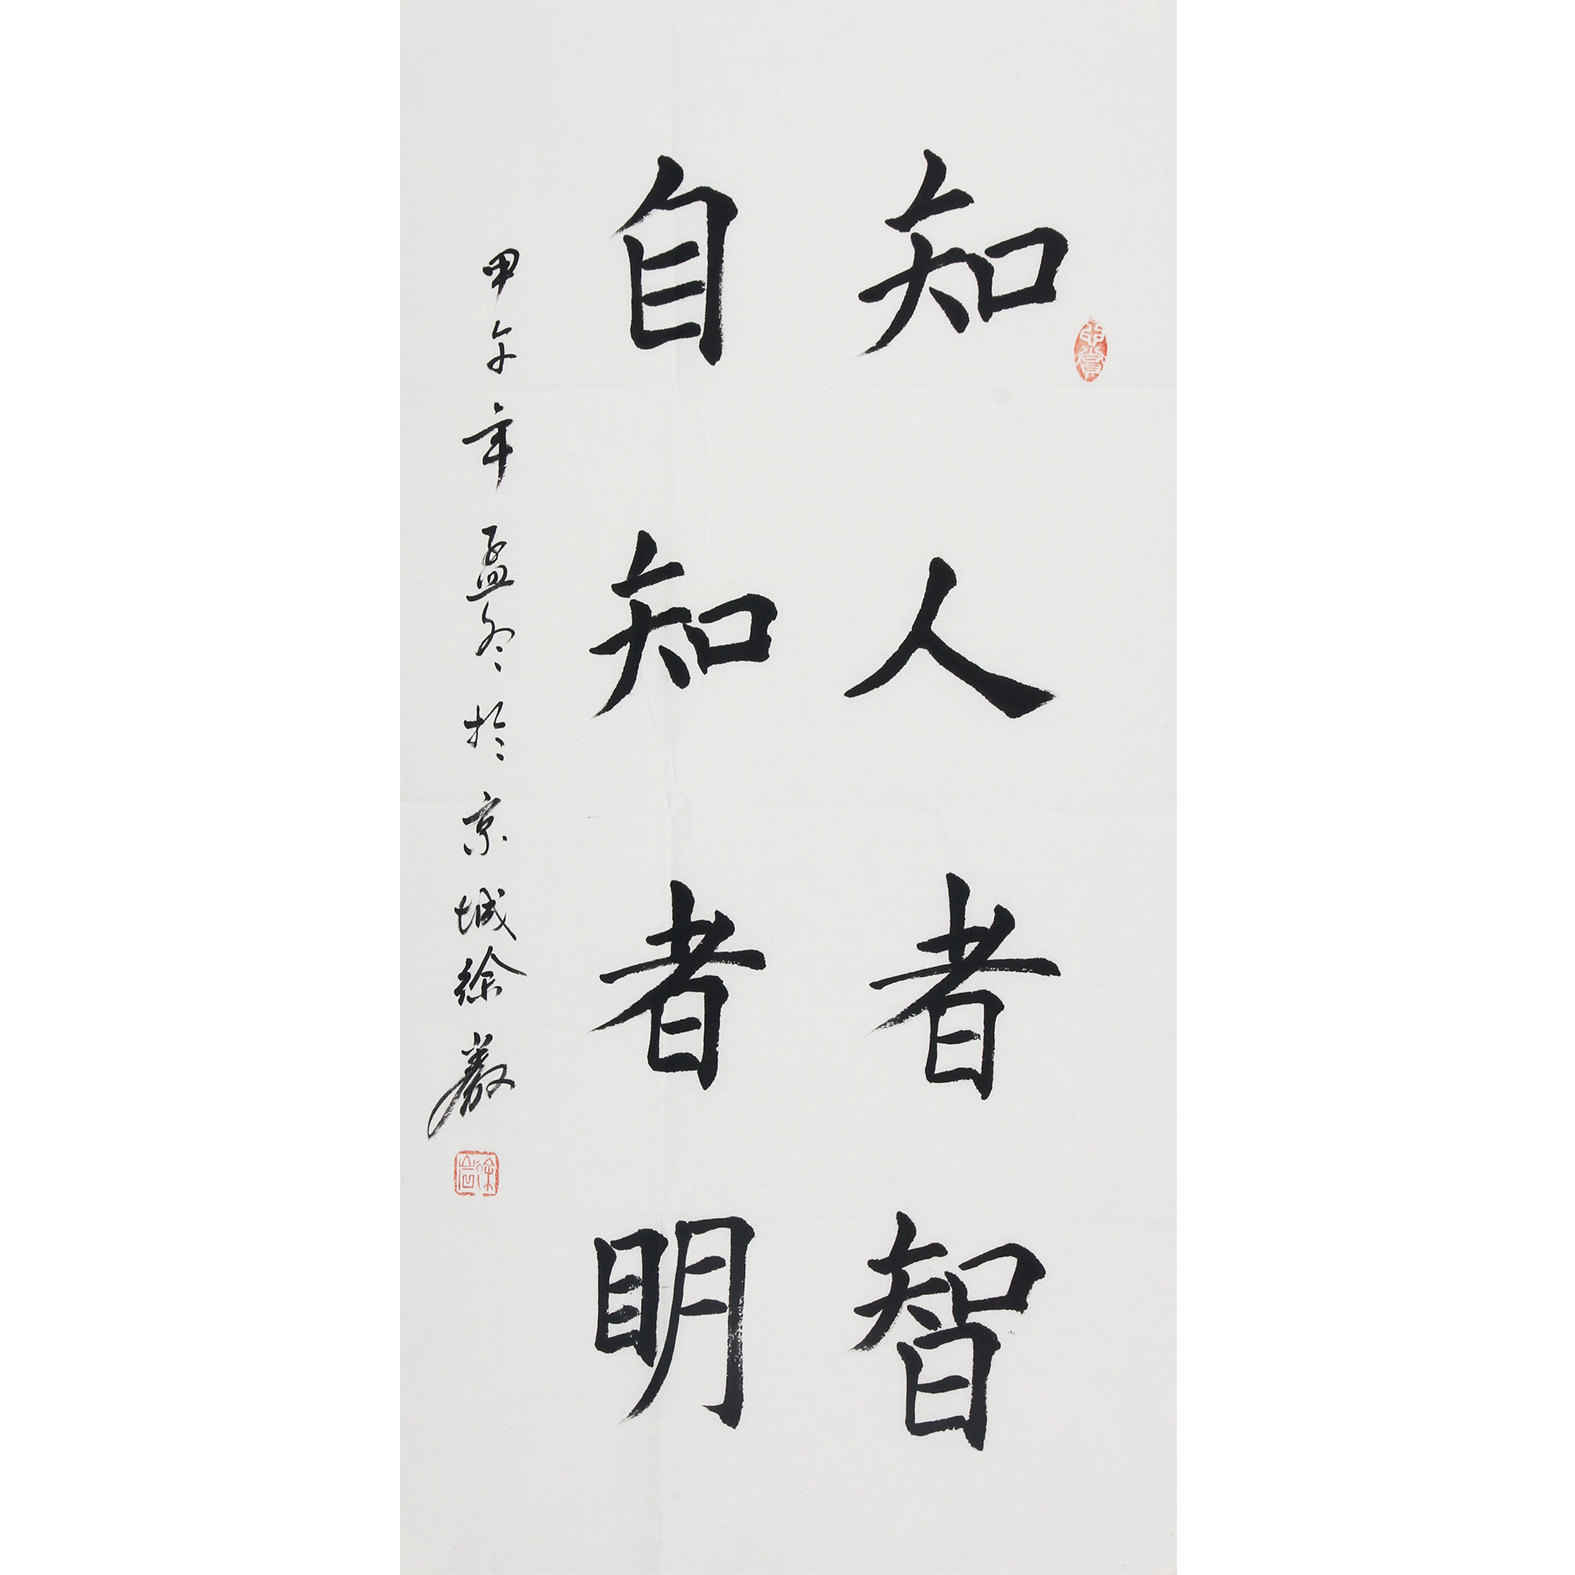 知人者智
自知者明
甲午年孟冬於京城徐岩